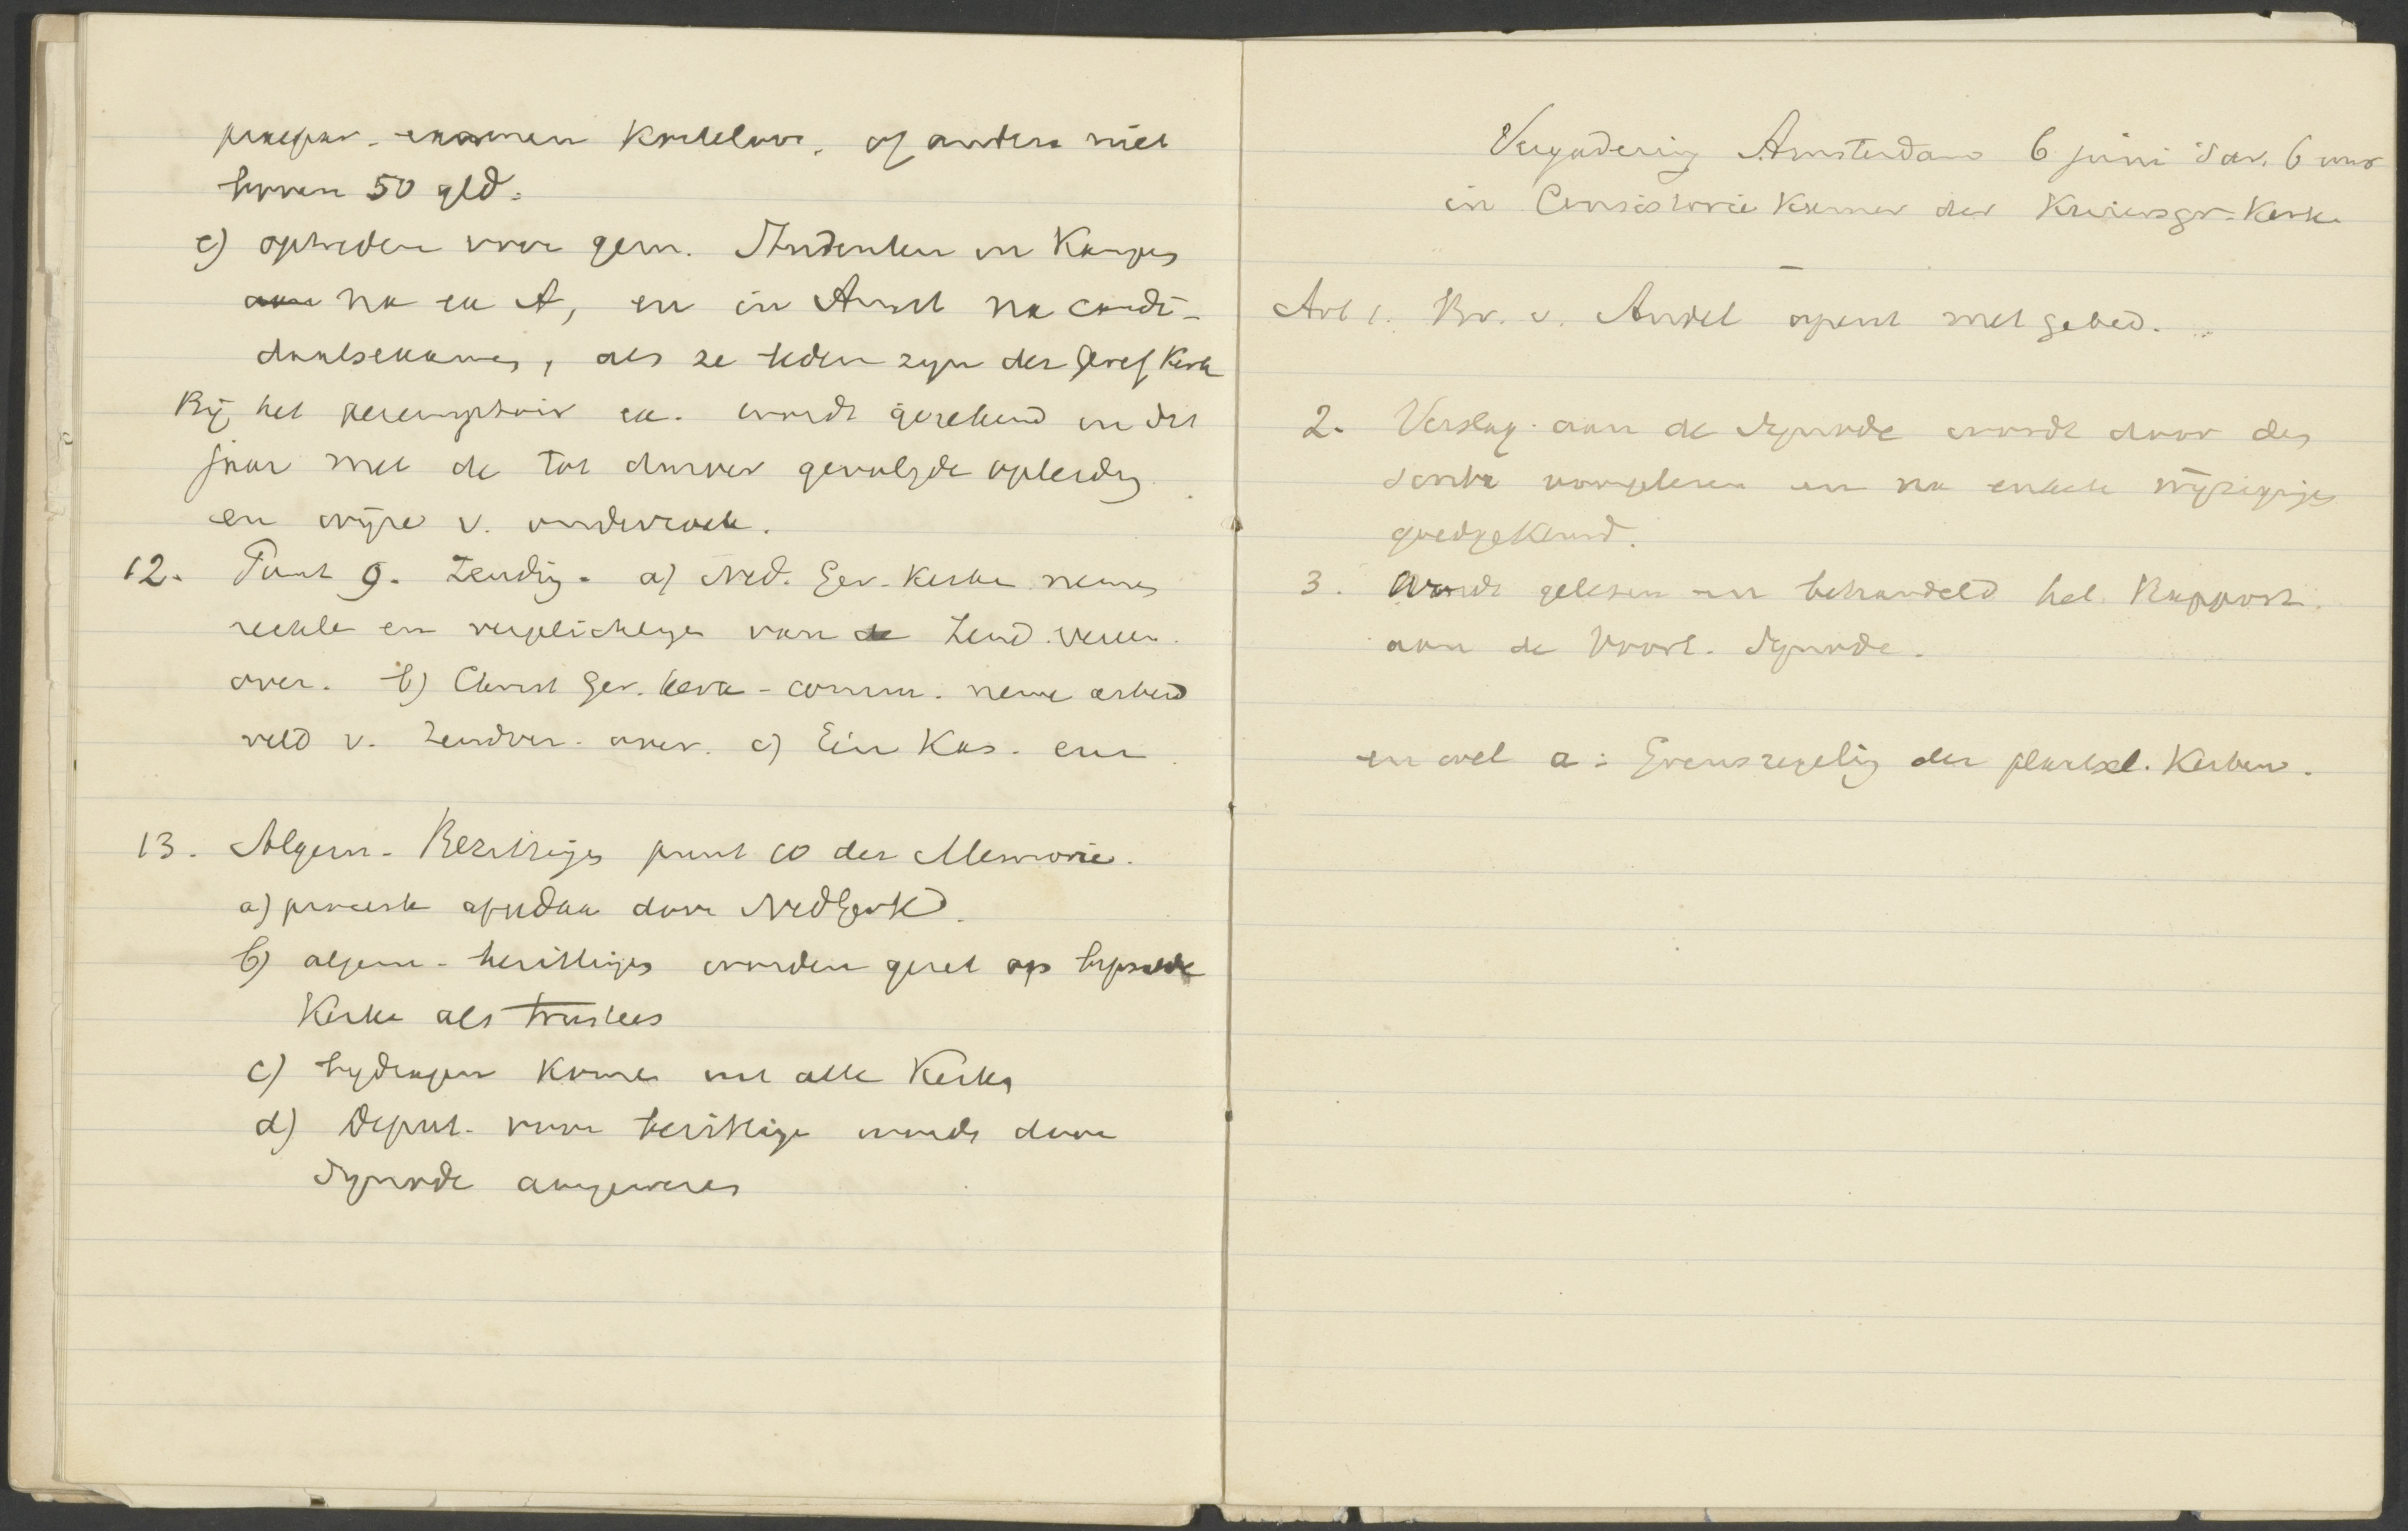 praepar. examen kosteloos, of anders niet
boven 50 gld.
c) optreden voor gem. Studenten in Kampen
na ex A, en in Amst na candi-
daatsexamen, als ze leden zyn der Geref Kerk
Bij het peremptoir ex. wordt gerekend in dit
jaar met de tot dusver gevolgde opleidg
en wijze v. onderzoek.
12. Punt 9. Zending. a) Ned. Ger. Kerken nemen
rechten en verplichtingen van de Zend. vereen.
over. b) Christ Ger. kerk - comm. neme arbeid
veld v. Zendver. over. c) Een Kas. enz
13. Algem. Bezittinges punt 10 der Memorie.
a) proceste door NedGerK
b) algem. bezittinges worden gezet op bepaalde
Kerken als trustees
c) bydragen komen uit alle Kerken
d) Deput. voor bezittinge wordt door
Synode aangewezen
Vergadering Amsterdam 6 juni 's av. 6 uur
in Consistorie Kamer der Keizersgr. Kerk.
Art 1. Br. v. Andel opent met gebed.
2. Verslag aan de Synode wordt door den
scriba voorgelezen en na enkele wijzigings
goedgekeurd.
3. Wordt gelezen en behandeld het Rapport.
aan de Voorl. Synode.
en wel a: Grensregelig der plaatsel. Kerken.